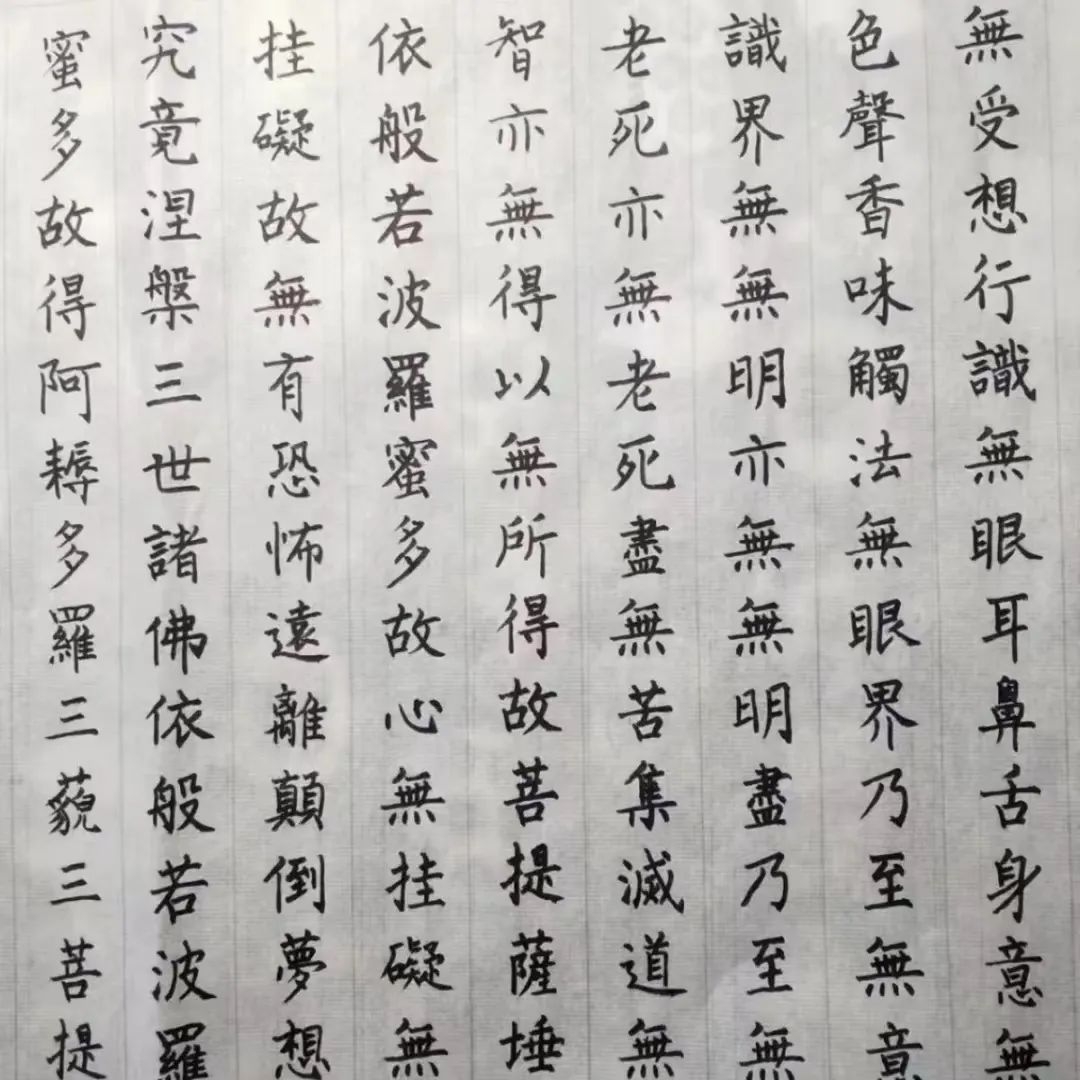 無受想行識無眼耳鼻舌身意無
色聲香味觸法無眼界乃至無意
識界無無明亦無無明盡乃至無
老死亦無老死盡無苦集滅道無
智亦無得以無所得故菩提薩埵
依般若波羅蜜多故心無挂礙無
挂礙故無有恐怖遠離顛倒夢想
究竟涅槃三世諸佛依般若波羅
蜜多故得阿耨多羅三藐三菩提